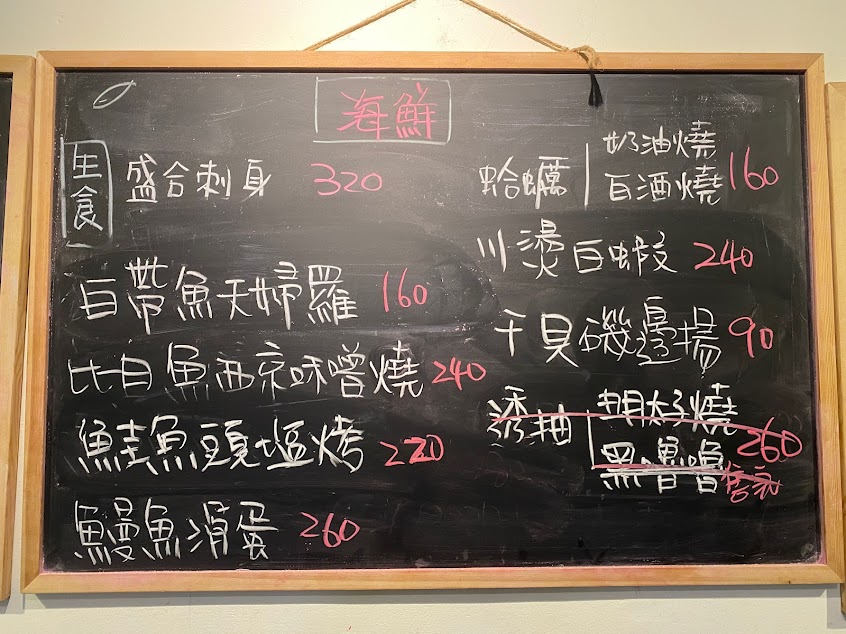 海鮮
生食
盛合刺身 320
白帶魚天婦羅 160
比目魚西京味噌燒 240
鮭魚頭塩烤 220
鰻魚滑蛋 260
蛤蠣 奶油燒 160
白酒燒
川燙白蝦 240
干貝磯邊揚 90
透抽 明太子燒 260
黑嚕嚕
售完